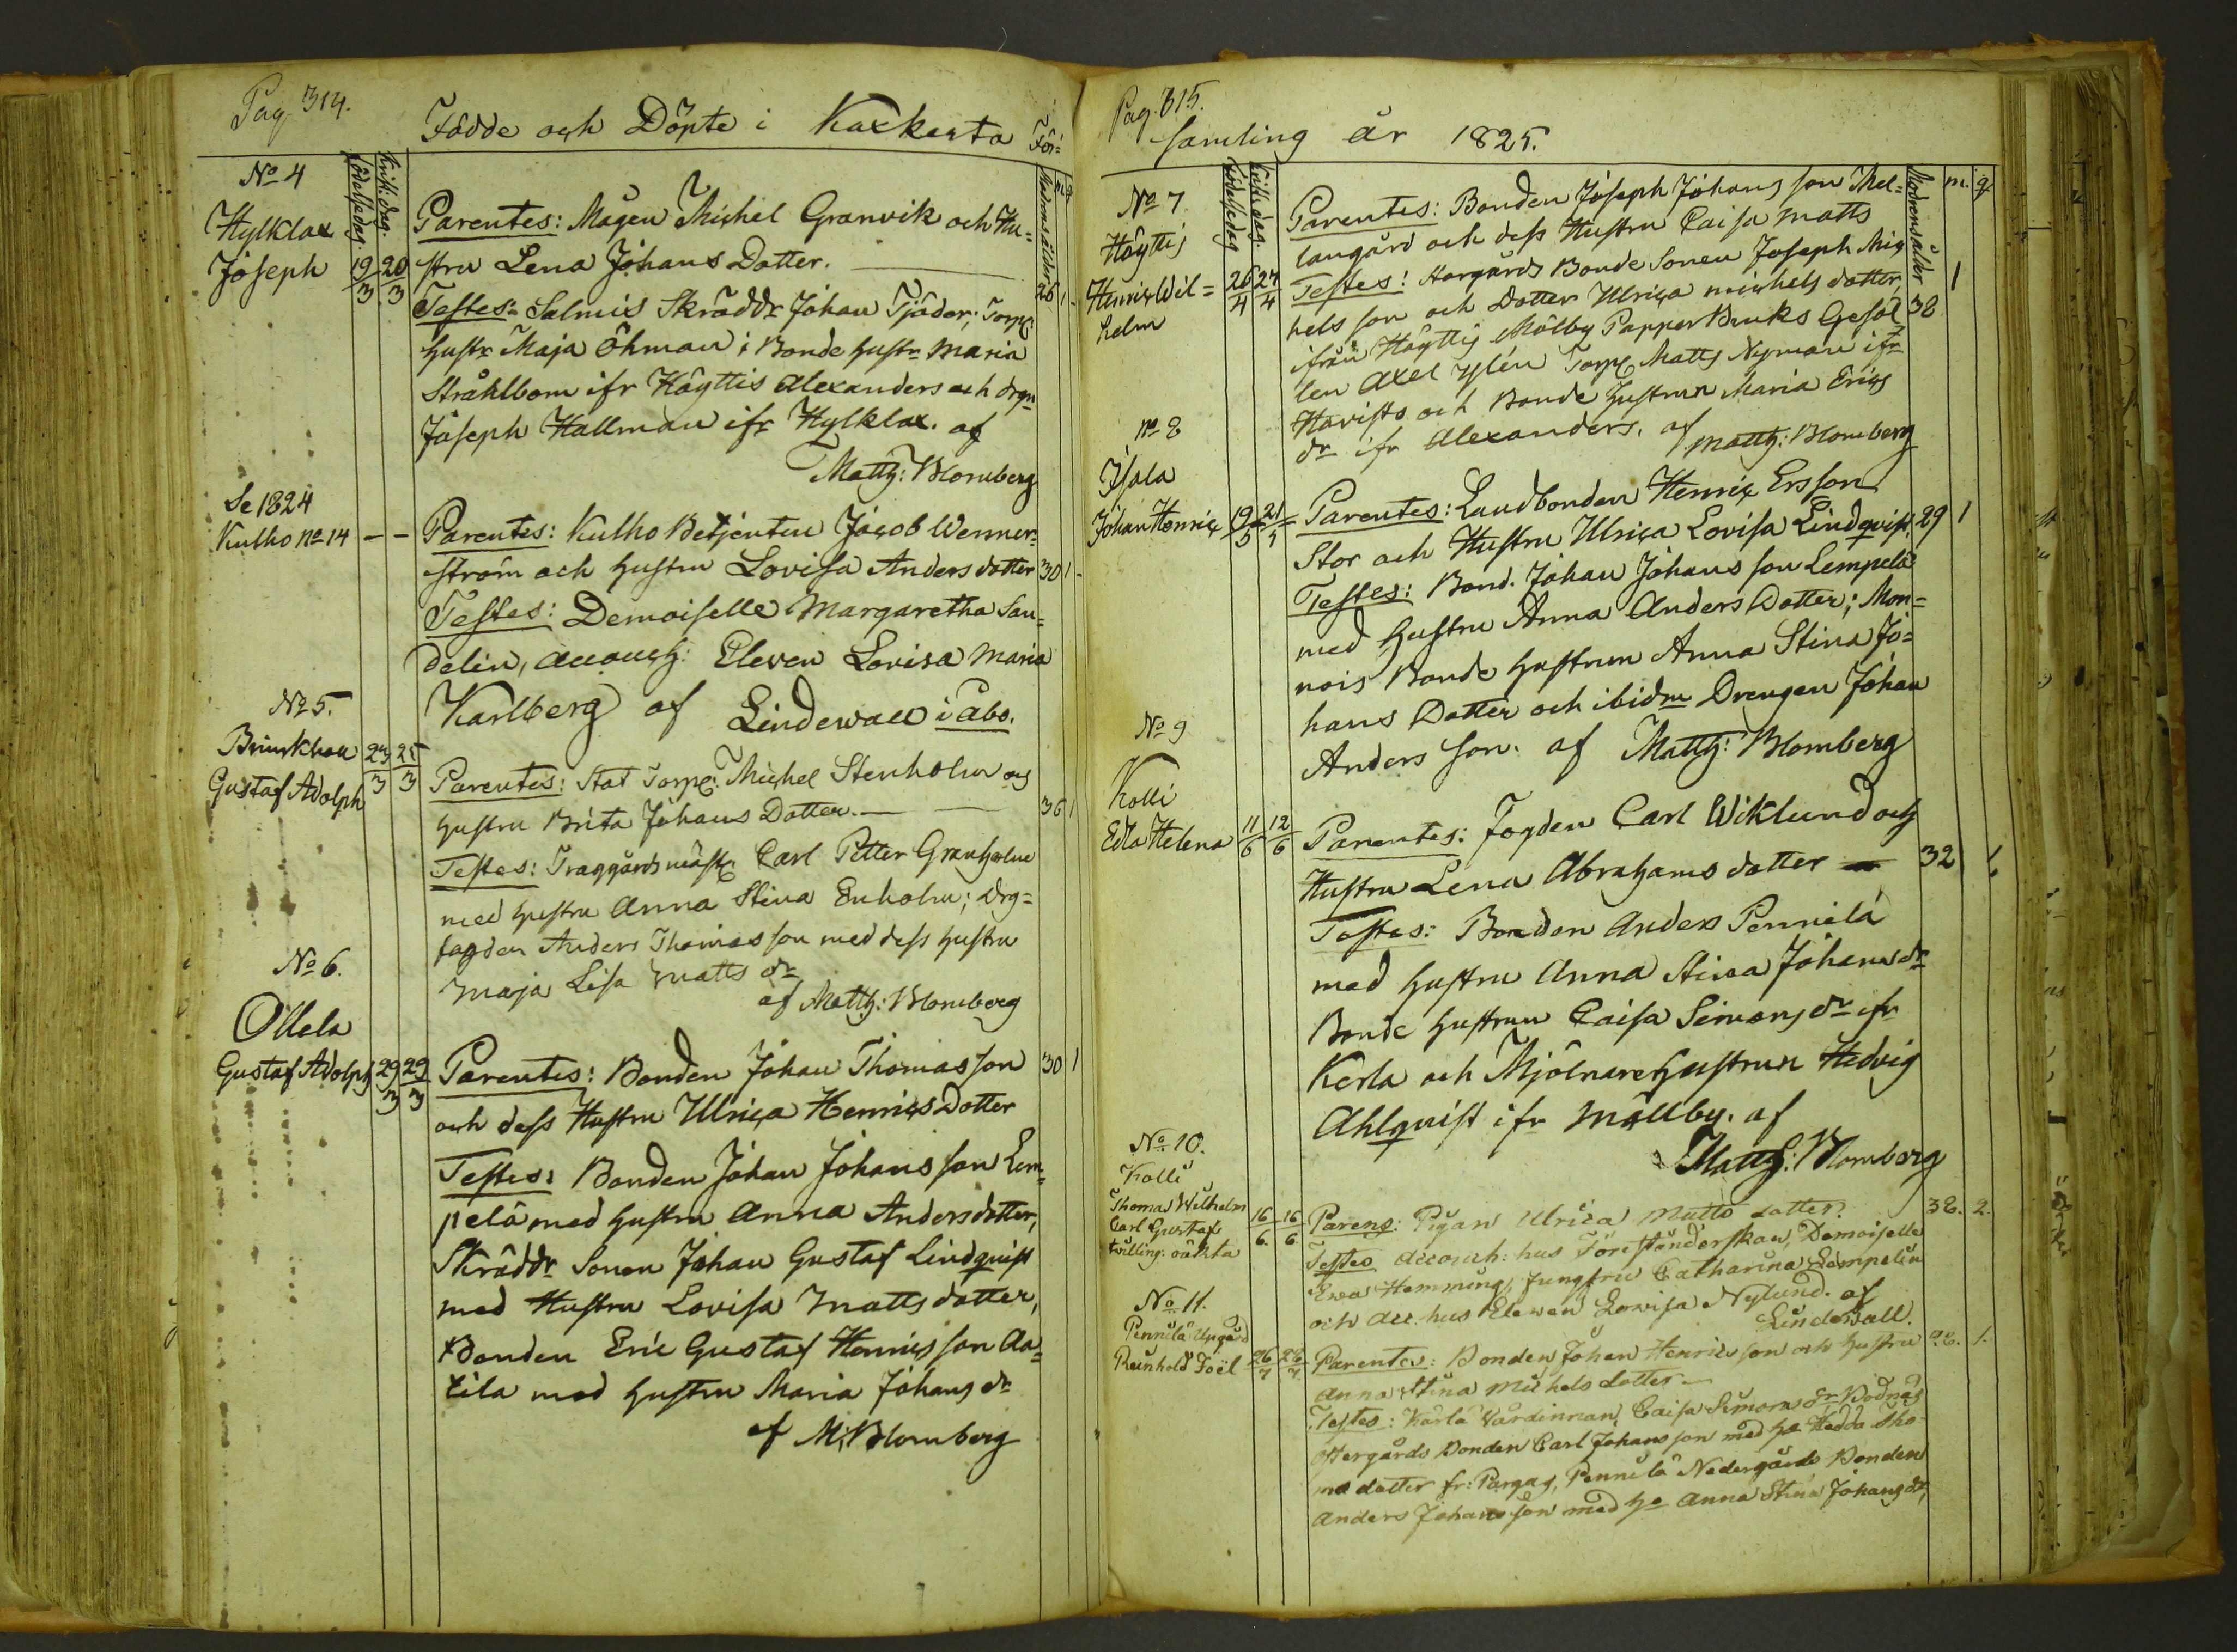 Pag. 314.
Födde och Döpte i Kakskerta För=
No 4
Hylklax
Joseph
Födelsedag.
Krist: dag.
Modrens ålder
m.
q.
19/3 20/3
Parentes: Mågen Michel Granvik och Hu=
stru Lena Johans Dotter.
26 1
Testes: Salmis Skräddr Johan Tjäder; Torp.
hustr Maja Öhman; Bonde hustr Maria
Stråhlbom ifr Höyttis Alexanders och drgn
Joseph Hallman ifr Hylklax. af
Matth: Blomberg
Se 1824
Kulho No 14 - -
Parentes: Kulho Betjenten Jacob Wenner=
ström och hustru Lovisa Anders dotter
30 1
Testes: Demoiselle Margaretha San=
delin, Accouch: Eleven Lovisa Maria
Karlberg af Lindewall i Åbo.
No 5.
Brinkhall
Gustaf Adolph
24/3 25/3
Parentes: Stat Torp. Michel Stenholm och
hustru Brita Johans Dotter.
36 1
Testes: Traggårdsmäst. Carl Petter Granholm
med hustru Anna Stina Enholm; Drg=
fogden Anders Thomas son med dess hustru
Maja Lisa Matts dr
af Matth: Blomberg
No 6.
Ollela
Gustaf Adolph
29/3 29/3
Parentes: Bonden Johan Thomas son
30 1
och dess Hustru Ulrica Henrics Dotter
Testes: Bonden Johan Johans son Lem=
pelä med hustru Anna Anders dotter,
Skräddr Sonen Johan Gustaf Lindquist
med Hustru Lovisa Matts dotter,
Bonden Eric Gustaf Henrics son
med hustru Maria Johans dr
af M: Blomberg
Pag. 315.
samling år 1825.
No 7
Höyttis
Henric Wil=
helm
Födelsedag
Krist: dag.
Modrens ålder
m.
q.
26/4 27/4
Parentes: Bonden Joseph Johans son Mel=
langård och dess Hustru Caisa Matts
Testes: Storgårds Bonde Sonen Joseph Mic
hels son och Dotter Ulrica Michels dotter,
38 1
ifrån Höyttis Mölby Papper Bruks Gesäl
len Axel Ylén Torp. Matts Nyman ifr
Haristo och Bonde hustrun Maria Erics
dr ifr Alexanders. af Matth: Blomberg
No 8
Isala
Johan Henric
19/5 21/5
Parentes: Landbonden Henric Ersson
Stor och Hustru Ulrica Lovisa Lindquist,
29 1
Testes: Bond. Johan Johans son Lempelä
med hustru Anna Anders Dotter; Mon=
nois Bonde hustrun Anna Stina Jo=
hans Dotter och ibidm Drengen Johan
Anders son. af Matth: Blomberg
No 9
Kolli
Edla Helena
11/6 12/6
Parentes: Fogden Carl Wiklund och
Hustru Lena Abrahams dotter
32 1
Testes: Bonden Anders Pennilä
med hustru Anna Stina Johans dr
Bonde hustrun Caisa Simons dr ifr
Kerla och Mjölnare hustrun Hedvig
Ahlquist ifr Mällby. af
Matth: Blomberg
No 10.
Kolli
Thomas Wilhelm
Carl Gustaf
tvilling: oäkta
16/6. 16/6.
Parens: Pigan Ulrica Matts dotter.
38. 2.
Testes Accouch: hus Föreständerskan, Demoiselle
Ewa Hemming, Jungfru Catharina Lempelin
och Acc. hus Elewen Lowisa Nylund. af
Lindewall.
No 11.
Pennilä Uppgård
Reinhold Joël
26/7 28/7
Parentes: Bonden Johan Henrics son och hustru
28. 1.
Anna Stina Michels dotter
Testes: Kärlä Värdinnan, Caisa Simons dr
Östergårds Bonden Carl Johans son med ha Hedda
dotter fr: Pargas, Pennilä Nedergårds Bonden
Anders Johans son med ha Anna Stina Johans dr,